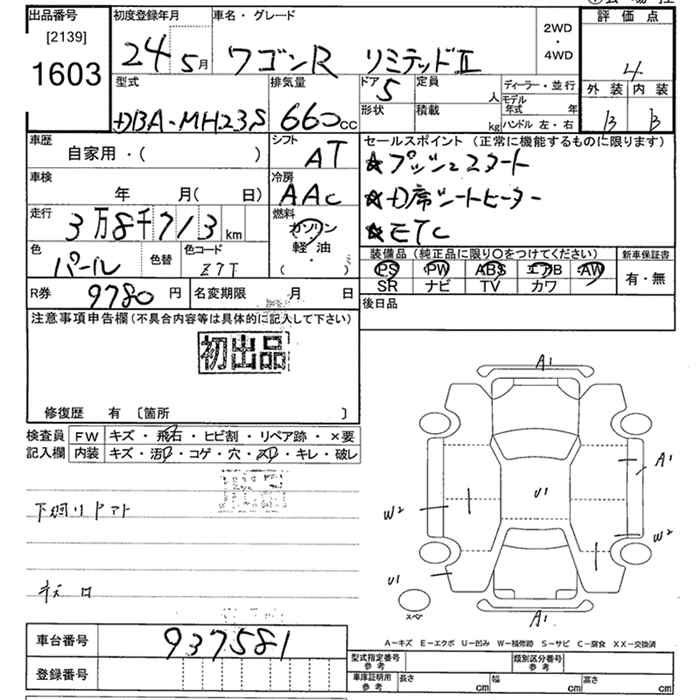 出品番号
[2139]
1603
初度登録年月
24 5月
車名・グレード
ワゴンR リミテッドⅡ
2WD
・
4WD
評価点
4
外装 内装
B B
型式
DBA-MH23S
排気量
660cc
ドア
5
定員
人
形状
積載
kg
ディーラー・並行
モデル年式 年
ハンドル 左・右
車歴
自家用・( )
シフト
AT
車検
年 月( 日)
冷房
AAC
走行
3万8千713km
燃料
ガソリン
軽油
( )
色
パール
色替
色コード
Z7T
R券
9780円
名変期限 月 日
セールスポイント(正常に機能するものに限ります)
☆プッシュスタート
☆D席シートヒーター
☆ETC
装備品(純正品に限り○をつけてください)
PS PW ABS エアB AW
SR ナビ TV カワ
新車保証書
有・無
後日品
注意事項申告欄(不具合内容等は具体的に記入して下さい)
初出品
修復歴 有 〔箇所 〕
検査員記入欄
FW キズ・飛石・ヒビ割・リペア跡・×要
内装 キズ・汚レ・コゲ・穴・スレ・キレ・破レ
下廻り
A1
A1
U1
W2
W2
U1
スペア
A1
A-キズ E-エクボ U-凹み W-補修跡 S-サビ C-腐食 XX-交換済
車台番号
937581
登録番号
型式指定番号参考
類別区分番号参考
車庫証明用参考
長さ cm 幅 cm 高さ cm